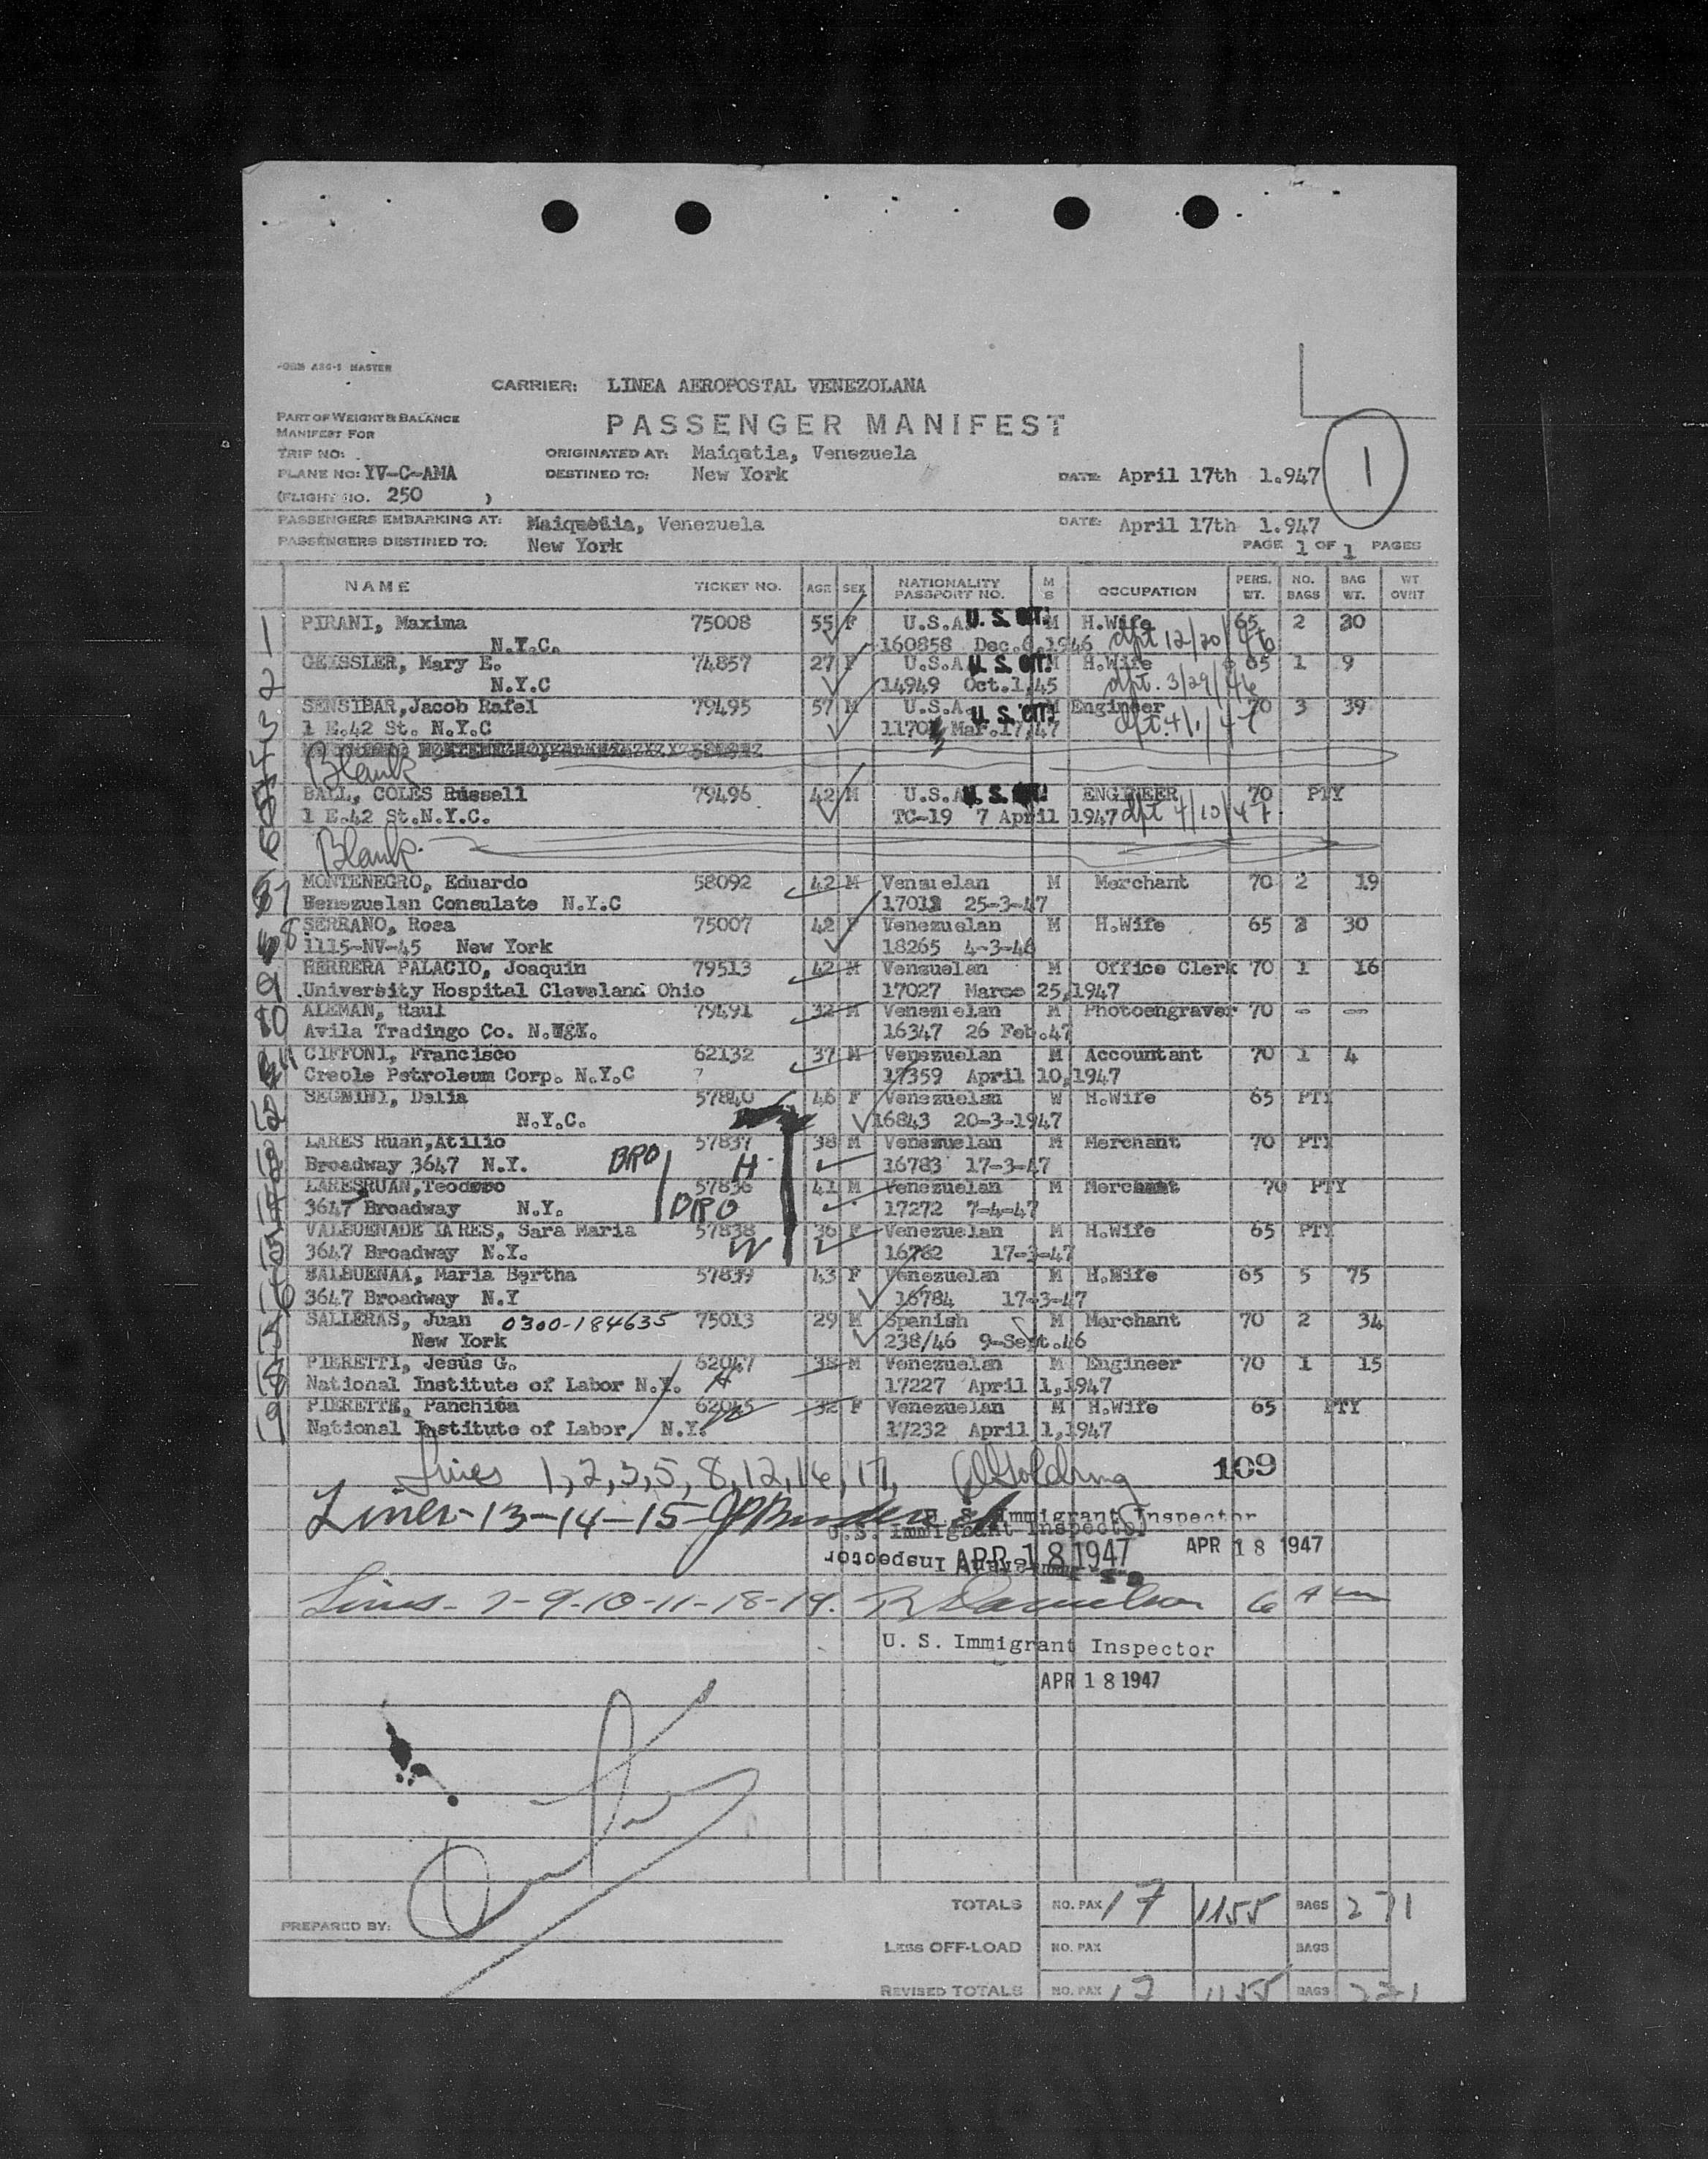 FORM ABG-1 MASTER
CARRIER: LINEA AEROPOSTAL VENEZOLANA
PART OF WEIGHT & BALANCE
MANIFEST FOR
PASSENGER MANIFEST
TRIP NO: ORIGINATED AT: Maiqetia, Venezuela
PLANE NO: YV-C-AMA DESTINED TO: New York DATE: April 17th 1.947 1
(FLIGHT NO. 250 )
PASSENGERS EMBARKING AT: Maiquetia, Venezuela DATE: April 17th 1.947
PASSENGERS DESTINED TO: New York PAGE 1 OF 1 PAGES
NAME TICKET NO. AGE SEX NATIONALITY PASSPORT NO. M S OCCUPATION PERS. WT. NO. BAGS BAG WT. WT OVWT
1 PIRANI, Maxima 75008 55 F U.S.A. U. S. CIT! M H.Wife 65 2 20
N.Y.C. 160858 Dec.6,1946 dpt 12/20/46
2 GEISSLER, Mary E. 74857 27 F U.S.A U. S. CIT! M H.Wife 65 1 9
N.Y.C 14949 Oct.1,45 dpt. 3/29/46
3 SENSIBAR,Jacob Rafel 79495 57 M U.S.A. U. S. CIT! M Engineer 70 3 39
1 E.42 St. N.Y.C 1170 Mar.17,47 dpt. 4/1/47
4 Blank
5 BALL, COLES Russell 79496 42 M U.S.A U. S. CIT! ENGINEER 70 PTY
1 E.42 St.N.Y.C. TC-19 7 April 1947 dpt 4/10/47
6 Blank
7 MONTENEGRO, Eduardo 58092 42 M Venzuelan M Merchant 70 2 19
Benezuelan Consulate N.Y.C 17012 25-3-47
8 SERRANO, Rosa 75007 42 F Venezuelan M H.Wife 65 2 30
1115-NV-45 New York 18265 4-3-46
9 HERRERA PALACIO, Joaquin 79513 42 M Venzuelan M Office Clerk 70 1 16
University Hospital Cleveland Ohio 17027 Marco 25,1947
10 ALEMAN, Raul 79491 32 M Venezuelan M Photoengraver 70 - --
Avila Tradingo Co. N.Y. 16347 26 Feb.47
11 CIFFONI, Francisco 62132 37 M Venezuelan M Accountant 70 1 4
Creole Petroleum Corp. N.Y.C 17359 April 10,1947
12 SEGNINI, Dalia 57840 46 F Venezuelan W H.Wife 65 PTY
N.Y.C. 16843 20-3-1947
13 LARES Ruan,Atilio 57837 38 M Venezuelan M Merchant 70 PTY
Broadway 3647 N.Y. BRO H 16783 17-3-47
14 LARESRUAN,Teodoro 57836 41 M Venezuelan M Merchant 70 PTY
3647 Broadway N.Y. BRO 17272 7-4-47
15 VALBUENADE LARES, Sara Maria 57838 36 F Venezuelan M H.Wife 65 PTY
3647 Broadway N.Y. W 16782 17-3-47
16 BALBUENAA, Maria Bertha 57839 43 F Venezuelan M H.Wife 65 5 75
3647 Broadway N.Y 16784 17-3-47
SALLERAS, Juan 0300-184635 75013 29 M Spanish M Merchant 70 2 34
New York 238/46 9-Sept.46
18 PIERETTI, Jesús G. 62047 38 M Venezuelan M Engineer 70 1 15
National Institute of Labor N.Y. H 17227 April 1,1947
19 PIERETTE, Panchita 62045 32 F Venezuelan M H.Wife 65 PTY
National Institute of Labor N.Y. W 17232 April 1,1947
Lines 1,2,3,5,8,12,16,17, Golding 109
Lines-13-14-15- U. S. Immigrant Inspector
U. S. Immigrant Inspector
APR 18 1947 APR 18 1947
Lines- 7-9-10-11-18-19. R Danielson 6 Am
U. S. Immigrant Inspector
APR 18 1947
TOTALS NO. PAX 17 1155 BAGS 271
PREPARED BY:
LESS OFF-LOAD NO. PAX BAGS
REVISED TOTALS NO. PAX 17 1155 BAGS 271